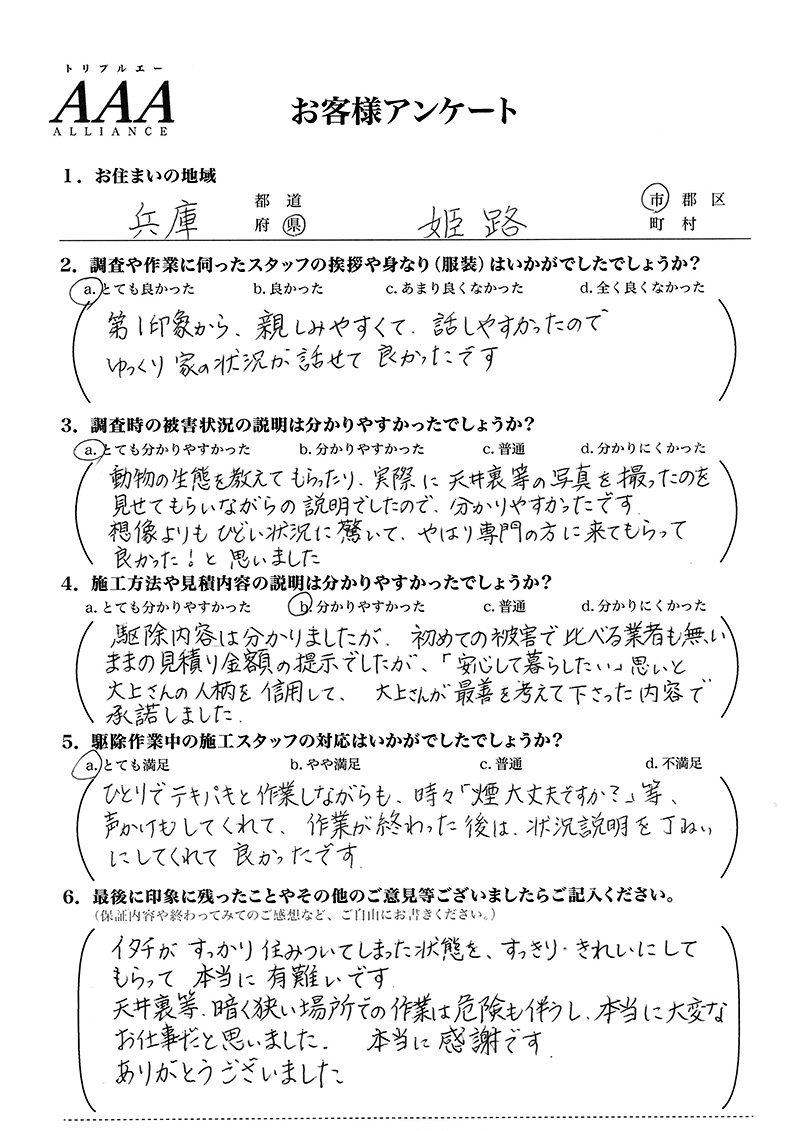 トリプルエー
AAA
ALLIANCE
お客様アンケート
1．お住まいの地域
兵庫 都道府県 姫路 市郡区町村
2．調査や作業に伺ったスタッフの挨拶や身なり（服装）はいかがでしたでしょうか？
a.とても良かった b.良かった c.あまり良くなかった d.全く良くなかった
第1印象から、親しみやすくて、話しやすかったので
ゆっくり家の状況が話せて良かったです
3．調査時の被害状況の説明は分かりやすかったでしょうか？
a.とても分かりやすかった b.分かりやすかった c.普通 d.分かりにくかった
動物の生態を教えてもらったり、実際に天井裏等の写真を撮ったのを
見せてもらいながらの説明でしたので、分かりやすかったです
想像よりもひどい状況に驚いて、やはり専門の方に来てもらって
良かった！と思いました
4．施工方法や見積内容の説明は分かりやすかったでしょうか？
a.とても分かりやすかった b.分かりやすかった c.普通 d.分かりにくかった
駆除内容は分かりましたが、初めての被害で比べる業者も無い
ままの見積り金額の提示でしたが、「安心して暮らしたい」思いと
大上さんの人柄を信用して、大上さんが最善を考えて下さった内容で
承諾しました.
5．駆除作業中の施工スタッフの対応はいかがでしたでしょうか？
a.とても満足 b.やや満足 c.普通 d.不満足
ひとりでテキパキと作業しながらも、時々「煙大丈夫ですか？」等、
声かけもしてくれて、作業が終わった後は、状況説明を丁ねい
にしてくれて良かったです.
6．最後に印象に残ったことやその他のご意見等ございましたらご記入ください。
（保証内容や終わってみてのご感想など、ご自由にお書きください。）
イタチがすっかり住みついてしまった状態を、すっきり・きれいにして
もらって本当に有難いです
天井裏等、暗く狭い場所での作業は危険も伴うし、本当に大変な
お仕事だと思いました。 本当に感謝です
ありがとうございました